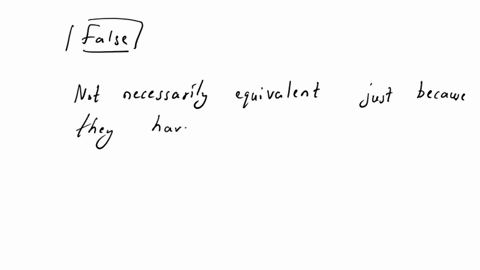 False
Not necessarily equivalent just because
they hav